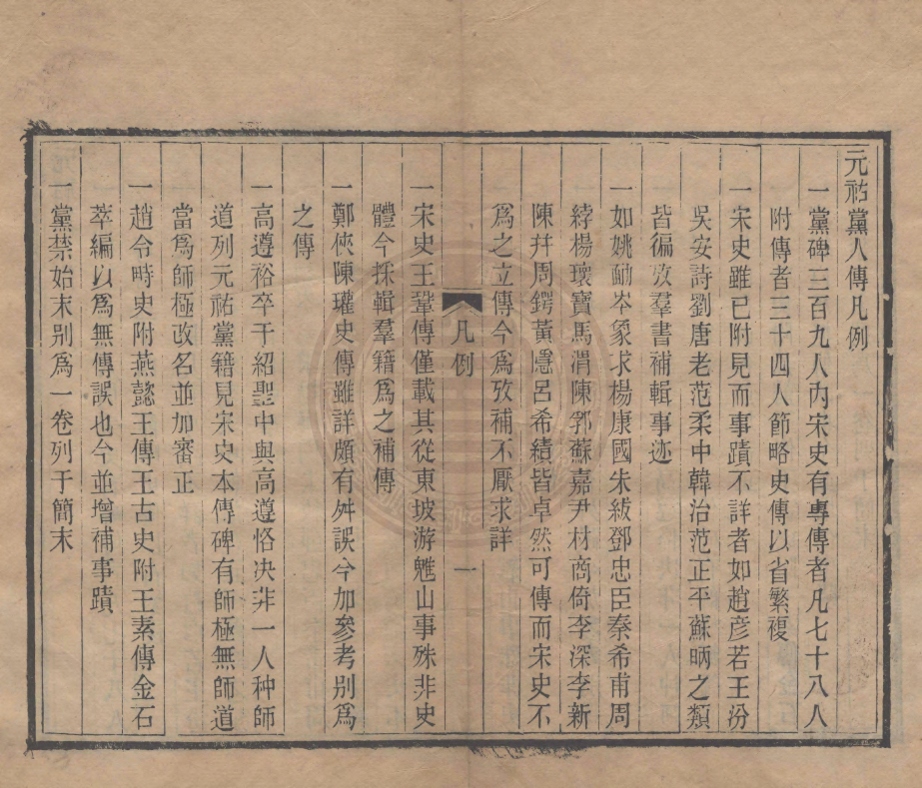 元祐黨人傳凡例
一黨碑三百九人內宋史有專傳者凡七十八人
附傳者三十四人節略史傳以省繁複
一宋史雖已附見而事蹟不詳者如趙彥若王汾
吳安詩劉唐老范柔中韓治范正平蘇昞之類
皆徧攷羣書補輯事迹
一如姚勔岑象求楊康國朱紱鄧忠臣秦希甫周
綍楊瓌寶馬涓陳郛蘇嘉尹材商倚李深李新
陳幷周鍔黃隱呂希績皆卓然可傳而宋史不
爲之立傳今爲攷補不厭求詳
凡例
一
一宋史王鞏傳僅載其從東坡游魋山事殊非史
體今採輯羣籍爲之補傳
一鄭俠陳瓘史傳雖詳頗有舛誤今加參考别爲
之傳
一高遵裕卒于紹聖中與高遵恪决非一人种師
道列元祐黨籍見宋史本傳碑有師極無師道
當爲師極改名並加審正
一趙令時史附燕懿王傳王古史附王素傳金石
萃編以爲無傳誤也今並增補事蹟
一黨禁始末别爲一卷列于簡末